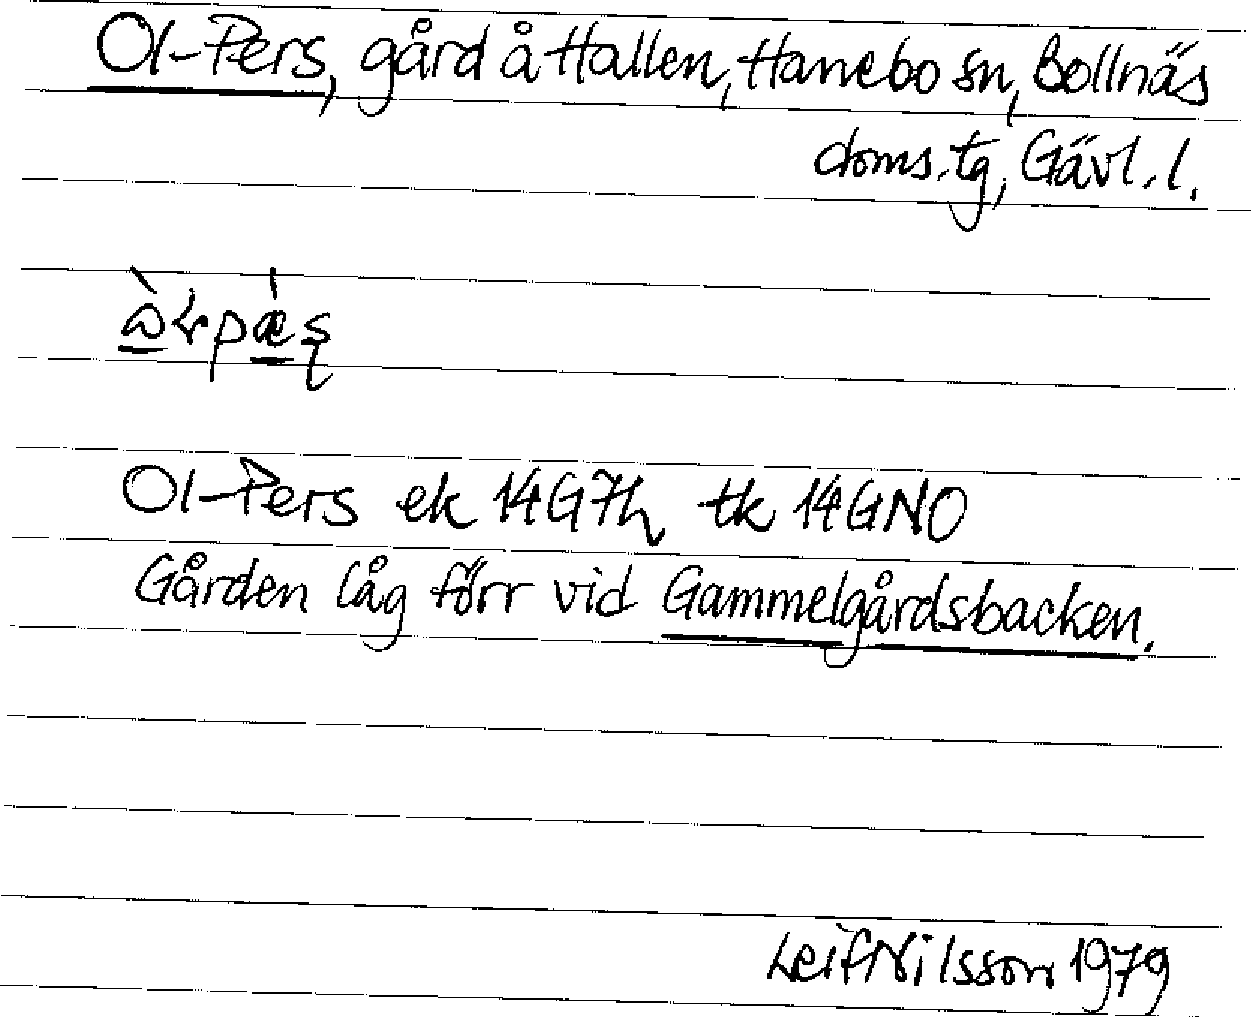 Ol-Pers, gård å Hallen, Hanebo sn, Bollnäs
doms.tg, Gävl.l.
Ol-Pers ek 14G7h tk 14GNO
Gården låg förr vid Gammelgårdsbacken.
Leif Nilsson 1979